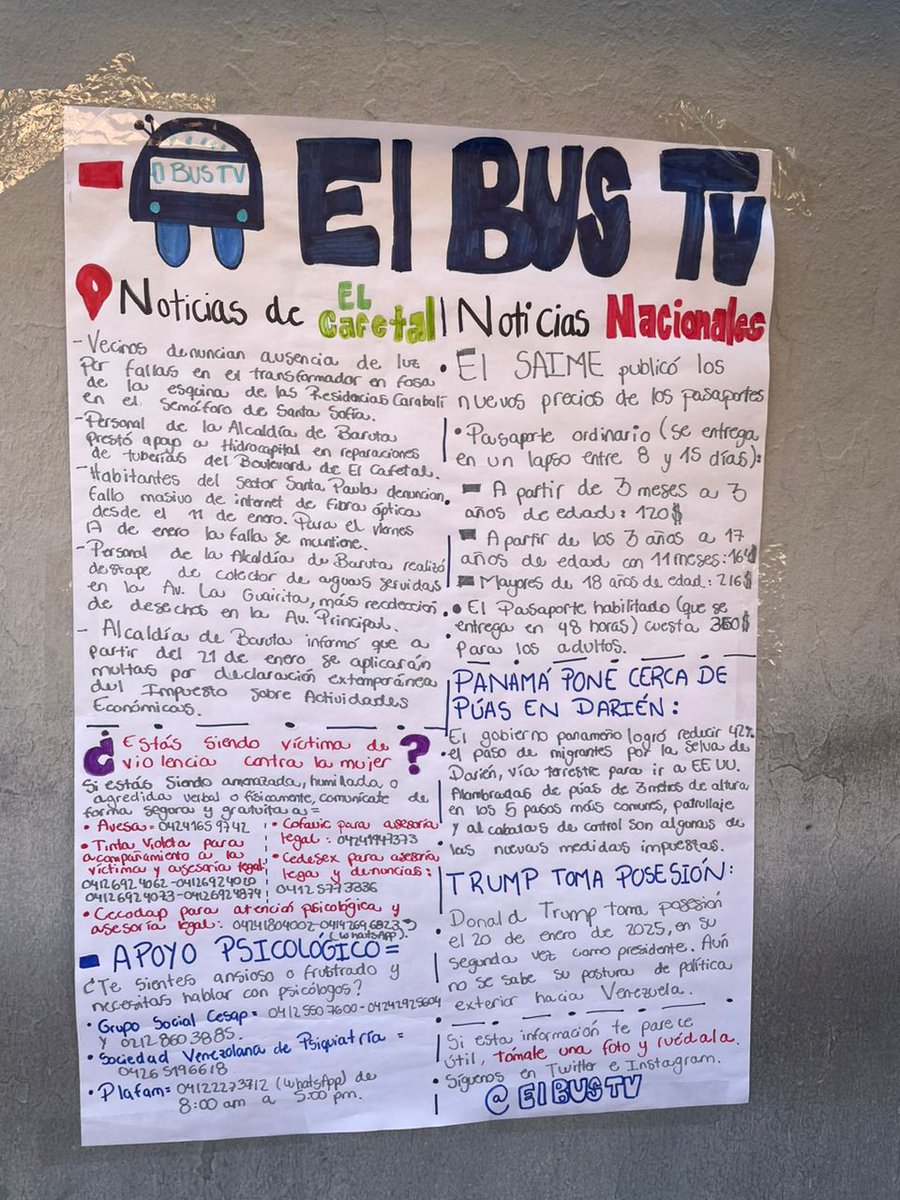 El BUS TV
El BUS TV
Noticias de EL Cafetal
- Vecinos denuncian ausencia de luz
por fallas en el transformador en fosa
de la esquina de las Residencias Carabalí
en el Semáforo de Santa Sofía.
- Personal de la Alcaldía de Baruta
prestó apoyo a Hidrocapital en reparaciones
de tuberías del Boulevard de El Cafetal.
- Habitantes del Sector Santa Paula denuncian
fallo masivo de internet de fibra óptica
desde el 11 de enero. Para el viernes
17 de enero la falla se mantiene.
- Personal de la Alcaldía de Baruta realizó
destape de colector de aguas servidas
en la Av. La Guairita, más recolección
de desechos en la Av. Principal.
- Alcaldía de Baruta informó que a
partir del 21 de enero se aplicarán
multas por declaración extemporánea
del Impuesto sobre Actividades
Económicas.
¿Estás siendo víctima de
violencia contra la mujer?
Si estás siendo amenazada, humillada o
agredida verbal o físicamente, comunícate de
forma segura y gratuita a=
• Avesa= 0424165 9742
• Tinta Violeta para
acompañamiento a la
víctima y asesoría legal
0412692 4062 - 04126924020
04126924073 - 04126924874
• Cofavic para asesoría
legal: 04241947373
• Cedesex para asesoría
lega y denuncias:
0412 5773336
• Cecodap para atención psicológica y
asesoría legal: 04241804002 - 04142696823
(WhatsApp).
- APOYO PSICOLÓGICO=
¿Te sientes ansioso o frustrado y
necesitas hablar con psicólogos?
• Grupo Social Cesap= 0412 550 7600 - 04242925604
y 0212 860 3885.
• Sociedad Venezolana de Psiquiatría =
0426 5196618
• Plafam= 04122273712 (WhatsApp) de
8:00 am a 5:00 pm.
Noticias Nacionales
• El SAIME publicó los
nuevos precios de los pasaportes
• Pasaporte ordinario (se entrega
en un lapso entre 8 y 15 días):
A partir de 3 meses a 3
años de edad: 120$
A partir de los 3 años a 17
años de edad con 11 meses: 164$
Mayores de 18 años de edad: 216$
• El Pasaporte habilitado (que se
entrega en 48 horas) cuesta 350$
para los adultos.
PANAMÁ PONE CERCA DE
PÚAS EN DARIÉN:
El gobierno panameño logró reducir 42%
el paso de migrantes por la selva de
Darién, vía terrestre para ir a EE UU.
Alambradas de púas de 3 metros de altura
en los 5 pasos más comunes, patrullaje
y alcabalas de control son algunas de
las nuevas medidas impuestas.
TRUMP TOMA POSESIÓN:
Donald Trump toma posesión
el 20 de enero de 2025, en su
segunda vez como presidente. Aún
no se sabe su postura de política
exterior hacia Venezuela.
Si esta información te parece
útil, tómale una foto y ruédala.
Síguenos en Twitter e Instagram.
@ El BUS TV